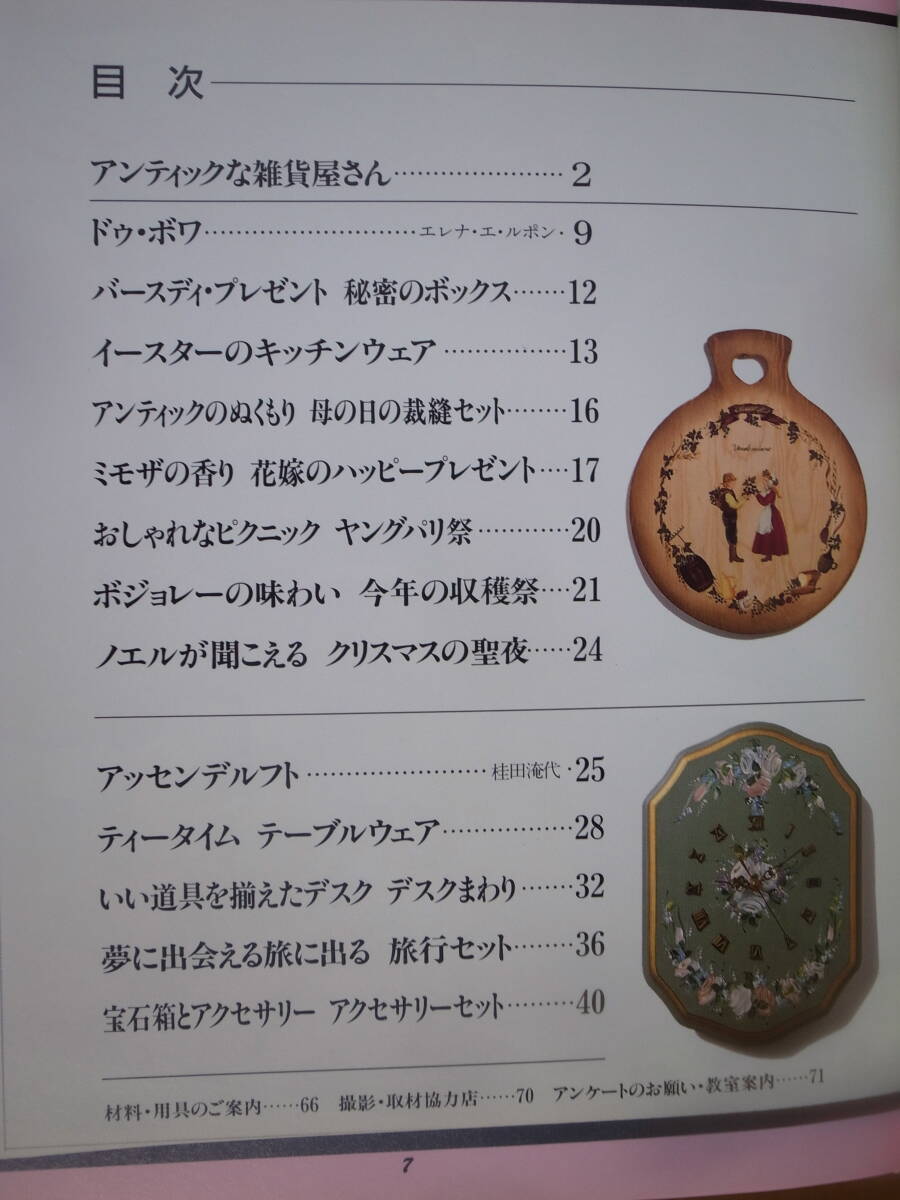 目 次
アンティックな雑貨屋さん……………………2
ドゥ・ボワ………………………エレナ・エ・ルポン・9
バースディ・プレゼント 秘密のボックス……12
イースターのキッチンウェア………………13
アンティックのぬくもり 母の日の裁縫セット………16
ミモザの香り 花嫁のハッピープレゼント…17
おしゃれなピクニック ヤングパリ祭…………20
ボジョレーの味わい 今年の収穫祭…21
ノエルが聞こえる クリスマスの聖夜……24
アッセンデルフト……………………桂田淹代・25
ティータイム テーブルウェア………………28
いい道具を揃えたデスク デスクまわり……32
夢に出会える旅に出る 旅行セット………36
宝石箱とアクセサリー アクセサリーセット………40
材料・用具のご案内……66 撮影・取材協力店……70 アンケートのお願い・教室案内……71
7